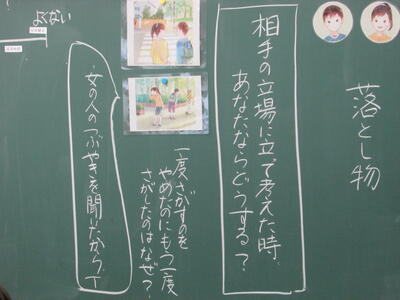 落とし物
相手の立場に立って考えた時、
あなたならどうする?
一度さがすのを
やめたのにもう一度
さがしたのはなぜ?
女の人のつぶやきを聞いたから
よくない